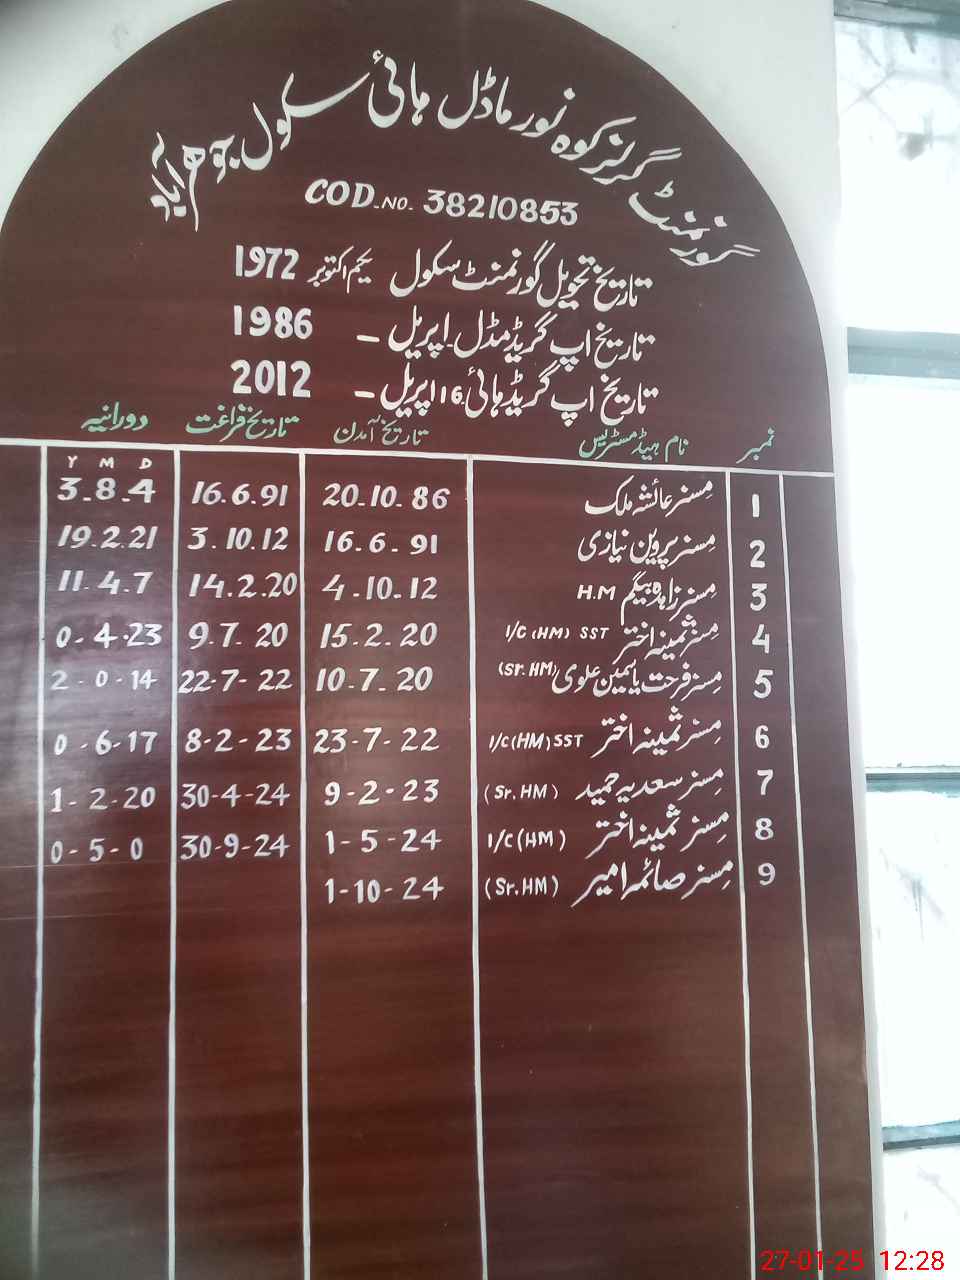 گورنمنٹ گرلز کوہ نور ماڈل ہائی سکول جوہرآباد
COD-NO- 38210853
تاریخ تحویل گورنمنٹ سکول یکم اکتوبر 1972
تاریخ اپ گریڈ مڈل اپریل - 1986
تاریخ اپ گریڈ ہائی 16 اپریل - 2012
نمبر نام ہیڈ مسٹریس تاریخ آمدن تاریخ فراغت دورانیہ
Y M D
1 مسز عائشہ ملک 20-10-86 16.6.91 3.8.4
2 مسز پروین نیازی 16.6.91 3.10.12 19.2.21
3 مسز زاہدہ بیگم H.M 4-10-12 14.2.20 11.4.7
4 مسز ثمینہ اختر I/C (HM) SST 15.2.20 9.7.20 0.4.23
5 مسز فرحت یاسمین علوی (Sr.HM) 10-7.20 22-7-22 2-0-14
6 مسز ثمینہ اختر I/C (HM) SST 23-7-22 8-2-23 0-6-17
7 مسز سعدیہ حمید (Sr.HM) 9-2-23 30-4-24 1-2-20
8 مسز ثمینہ اختر I/C (HM) 1-5-24 30-9-24 0-5-0
9 مسز صائمہ امیر (Sr.HM) 1-10-24
27-01-25 12:28